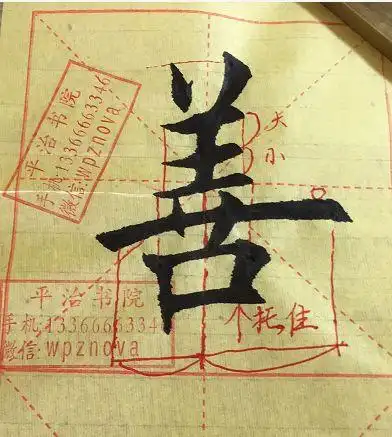 善
大
小
平治书院
手机:13366663346
微信:wpznova
平治书院
手机:1336666334
微信:wpznova
个托住